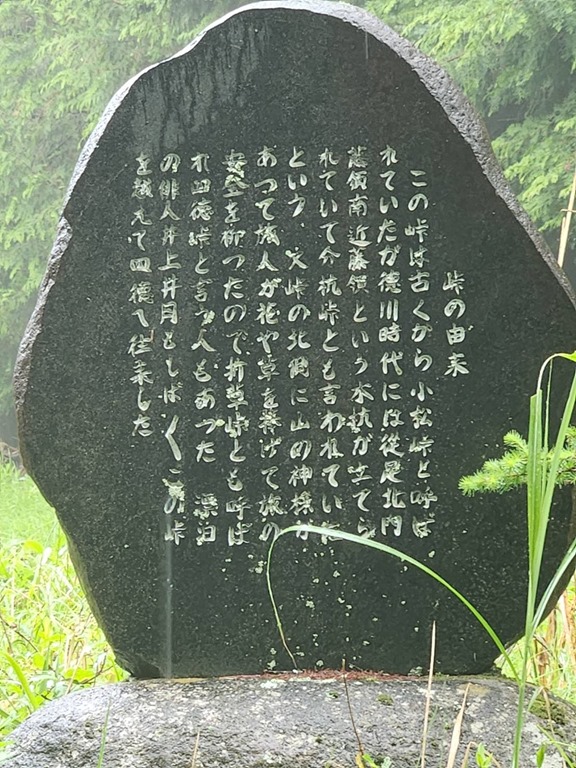 峠の由来
この峠は古くから小松峠と呼ば
れていたが徳川時代には従是北門
慈領南近藤領という木杭が立てら
れていて分杭峠とも言われていた
という 又峠の北側に山の神様が
あつて旅人が花や草を捧げて旅の
安全を祈つたので折草峠とも呼ば
れ四徳峠と言う人もあつた 漂泊
の俳人井上井月もしばしばこの峠
を越えて四徳へ往来した